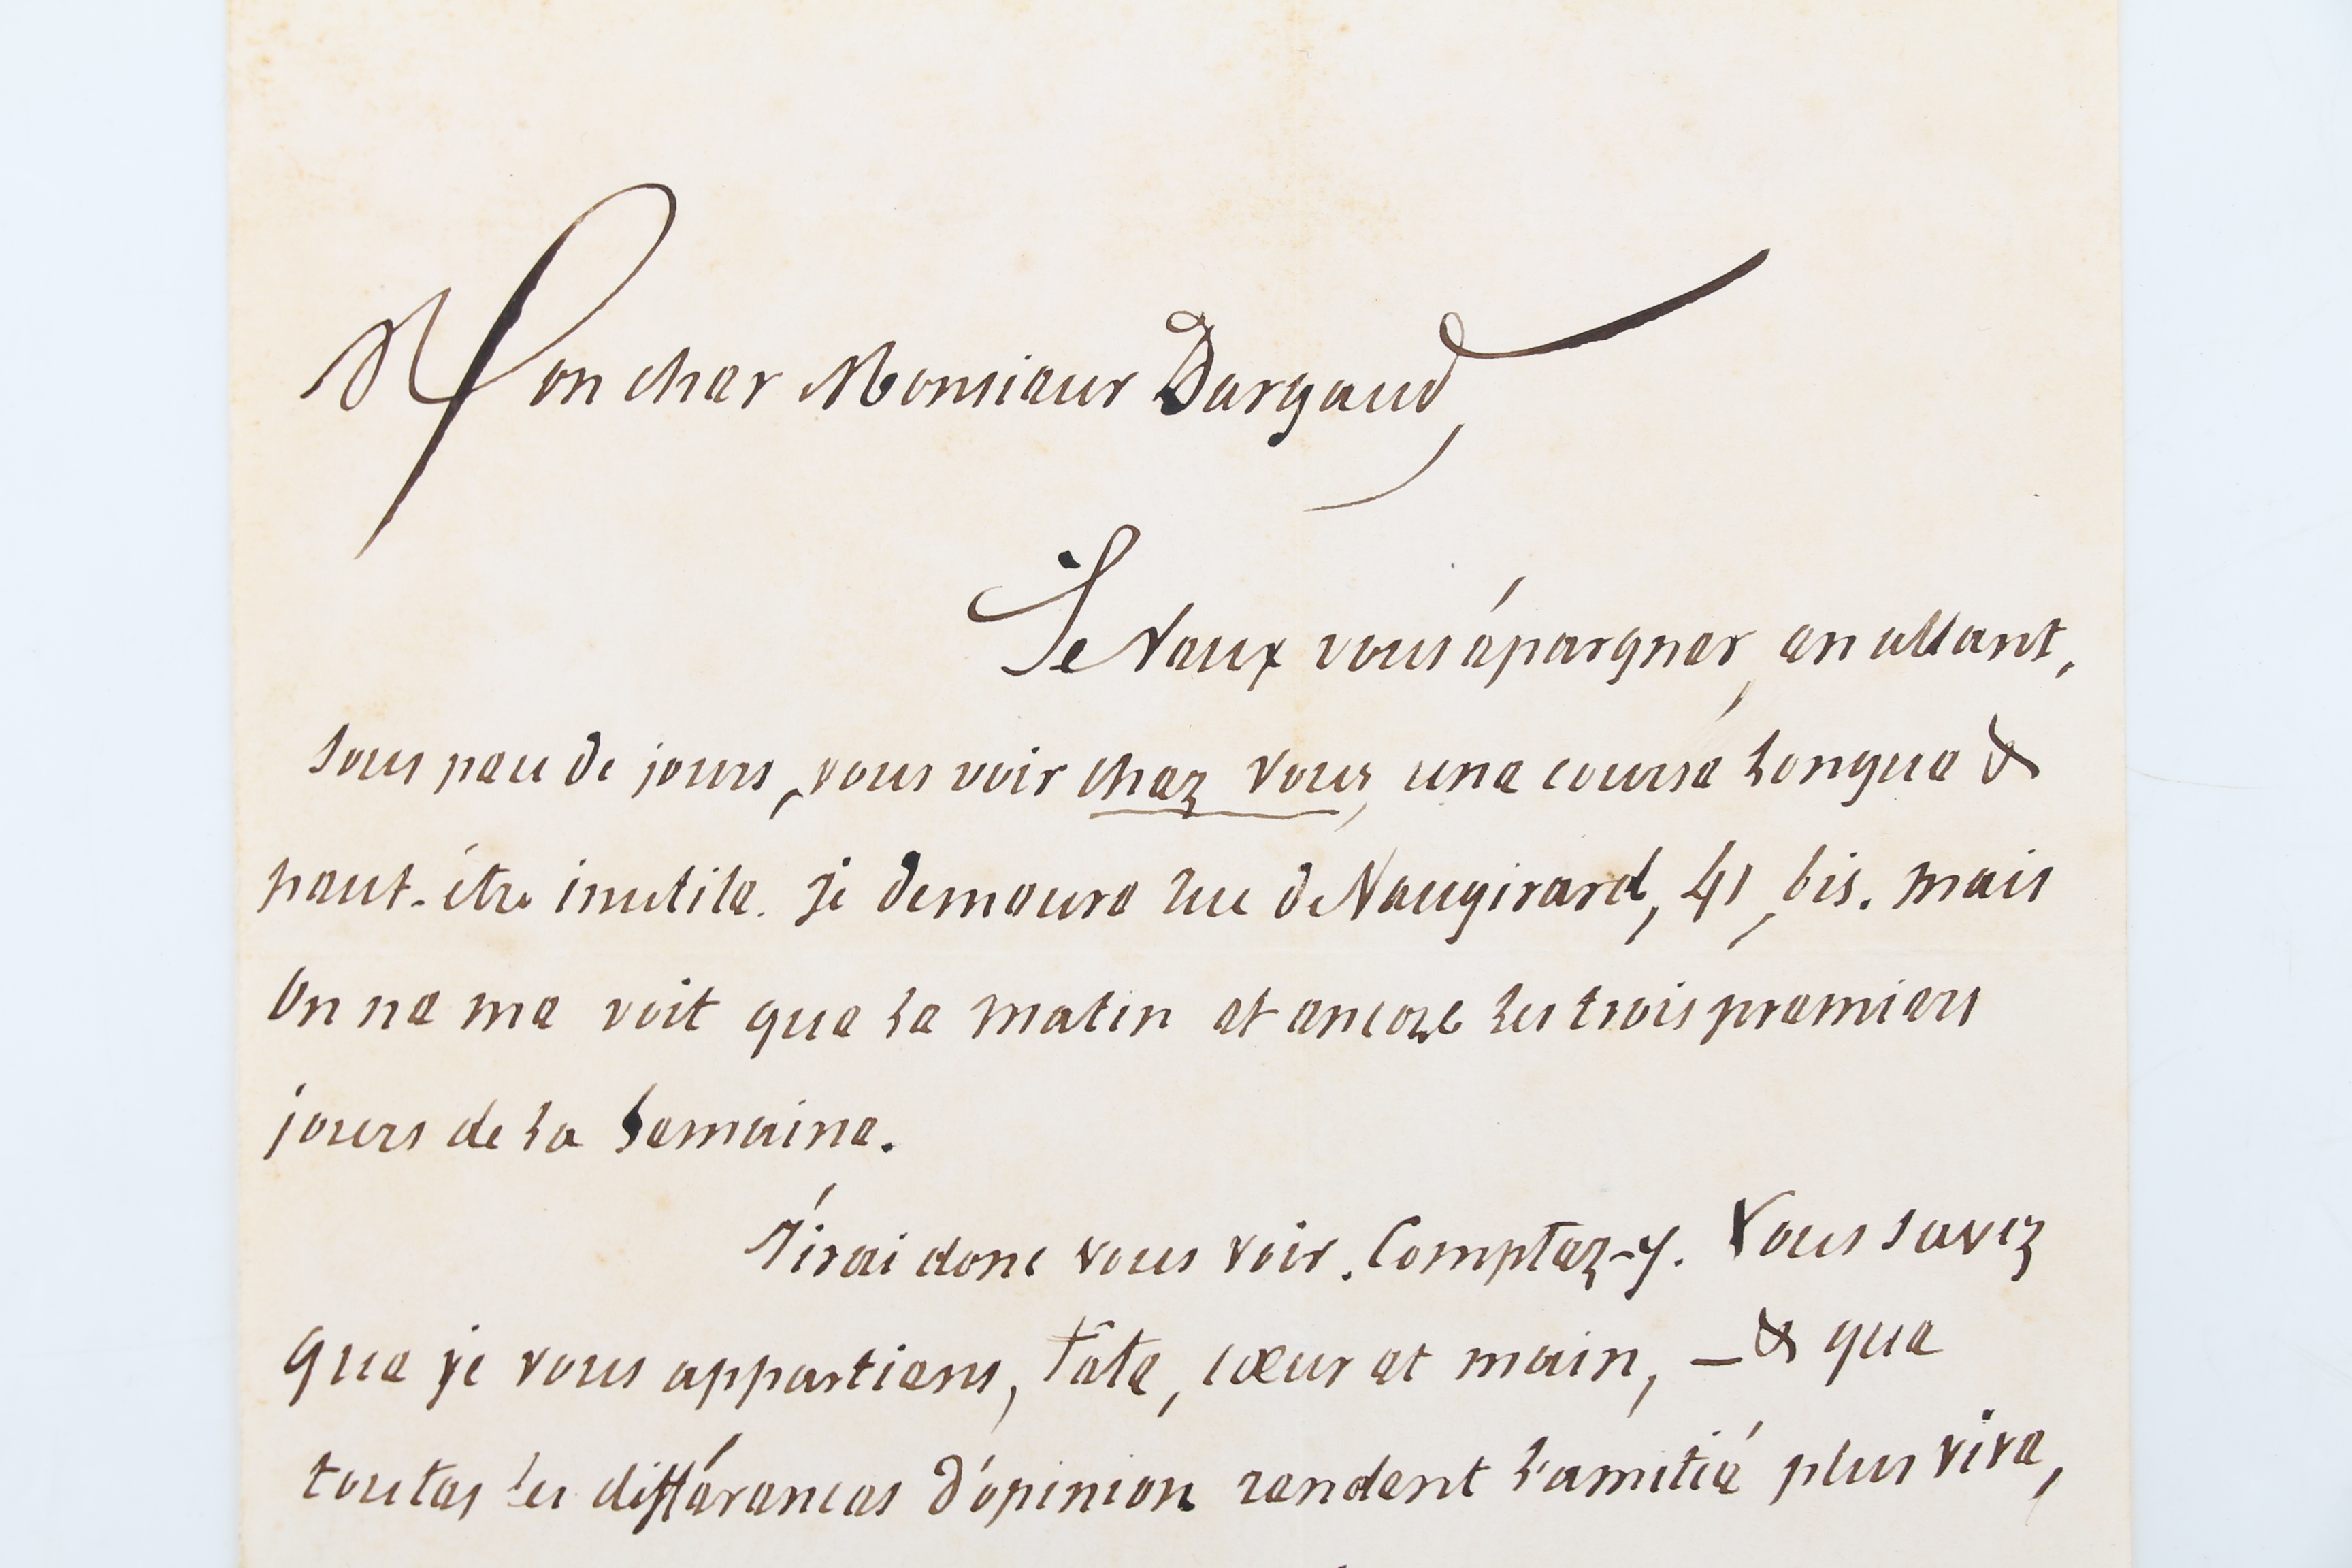 Mon cher Monsieur Dargaud,
Je veux vous épargner, en allant,
sous peu de jours, vous voir chez vous, une course longue &
peut-être inutile. je demeure rue de Vaugirard, 41, bis. mais
on ne me voit que le matin et encore les trois premiers
jours de la semaine.
J'irai donc vous voir. Comptez-y. Vous savez
que je vous appartiens, tête, cœur et main, — & que
toutes les différences d'opinion rendent l'amitié plus vive,